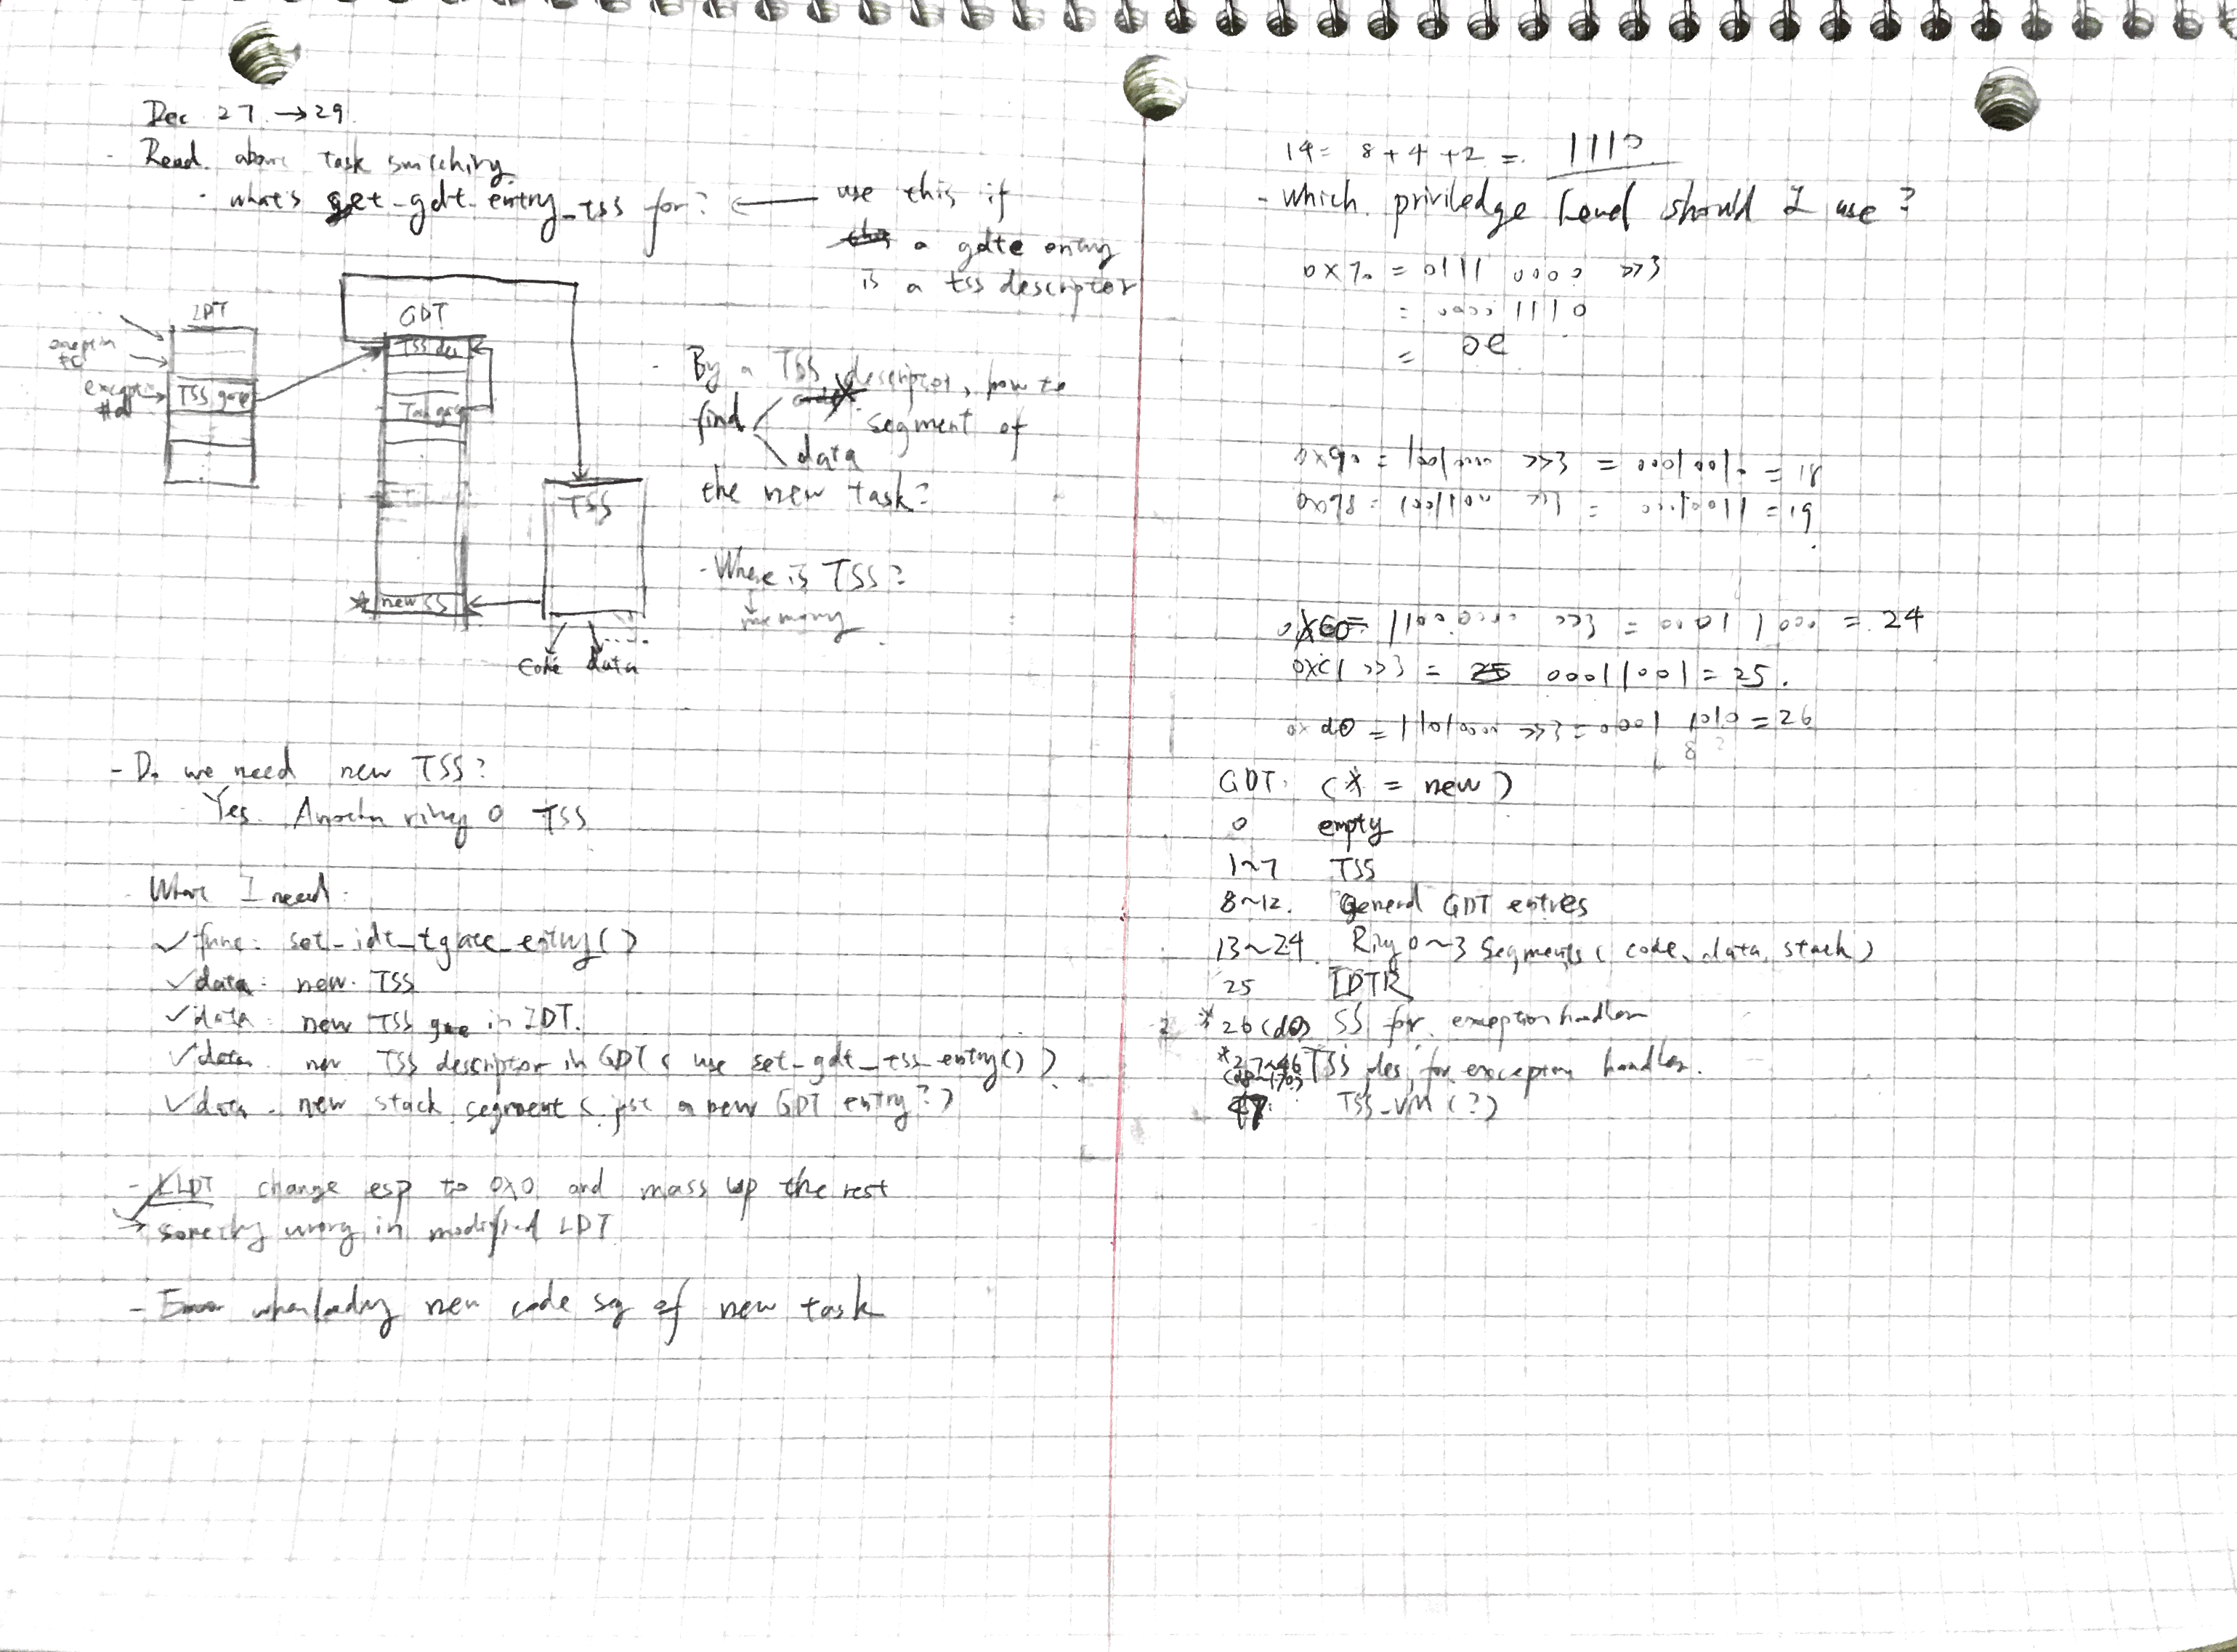 Dec 27 → 29.
- Read about task switching
- what's get_gdt_entry_tss for? ← use this if
a gdte entry
is a tss descriptor
IDT
GDT
TSS des
TSS gate
Task gate
TSS
* new SS
code data .....
- By a TSS descriptor, how to
find segment of
data
the new task?
- Where is TSS?
memory
- Do we need new TSS?
- Yes. Another ring 0 TSS
- What I need:
✓ func: set_idt_tgate_entry()
✓ data: new TSS
✓ data: new TSS gate in IDT.
✓ data: new TSS descriptor in GDT ( use set_gdt_tss_entry() )
✓ data: new stack segment ( just a new GDT entry? )
- LLDT change esp to 0x0 and mass up the rest
→ something wrong in modified LDT
- Error when loading new code seg of new task
14 = 8 + 4 + 2 = 1110
- Which priviledge Level should I use?
0x70 = 0111 0000 >>3
= 00001110
= 0e
0x90 = 10010000 >>3 = 00010010 = 18
0x98 = 10011000 >>3 = 00010011 = 19
= 00011000 = 24
>>3 = 00011001 = 25.
0xd0 = 11010000 >>3 = 0001 1010 = 26
8
GDT: (* = new)
0 empty
1~7 TSS
8~12. General GDT entries
13~24. Ring 0~3 Segments ( code, data, stack )
25 IDTR
* 26 (d0) SS for exception handler
* 27~46 TSS des, for exception handler.
47: TSS_VM (?)